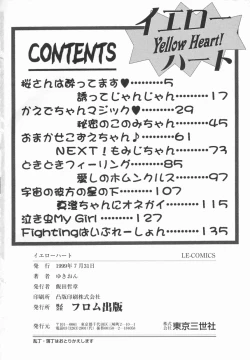 イエロー
Yellow Heart!
ハート
CONTENTS
桜さんは酔ってます♥………5
誘ってじゃんじゃん………17
かえでちゃんマジック♥………29
秘密のこのみちゃん………45
おまかせこずえちゃん♪………61
NEXT!もみじちゃん………73
どきどきフィーリング………85
愛しのホムンクルス………97
宇宙の彼方の星の下………107
真澄ちゃんにオネガイ………115
泣き虫My Girl………127
Fightingはいぶれーしょん………135
イエローハート LE-COMICS
発行 1999年7月31日
著者 ゆきおん
発行者 飯田哲章
印刷所 凸版印刷株式会社
発行 フロム出版
発行元
株式会社 東京三世社
乱丁・落丁はおとりかえします